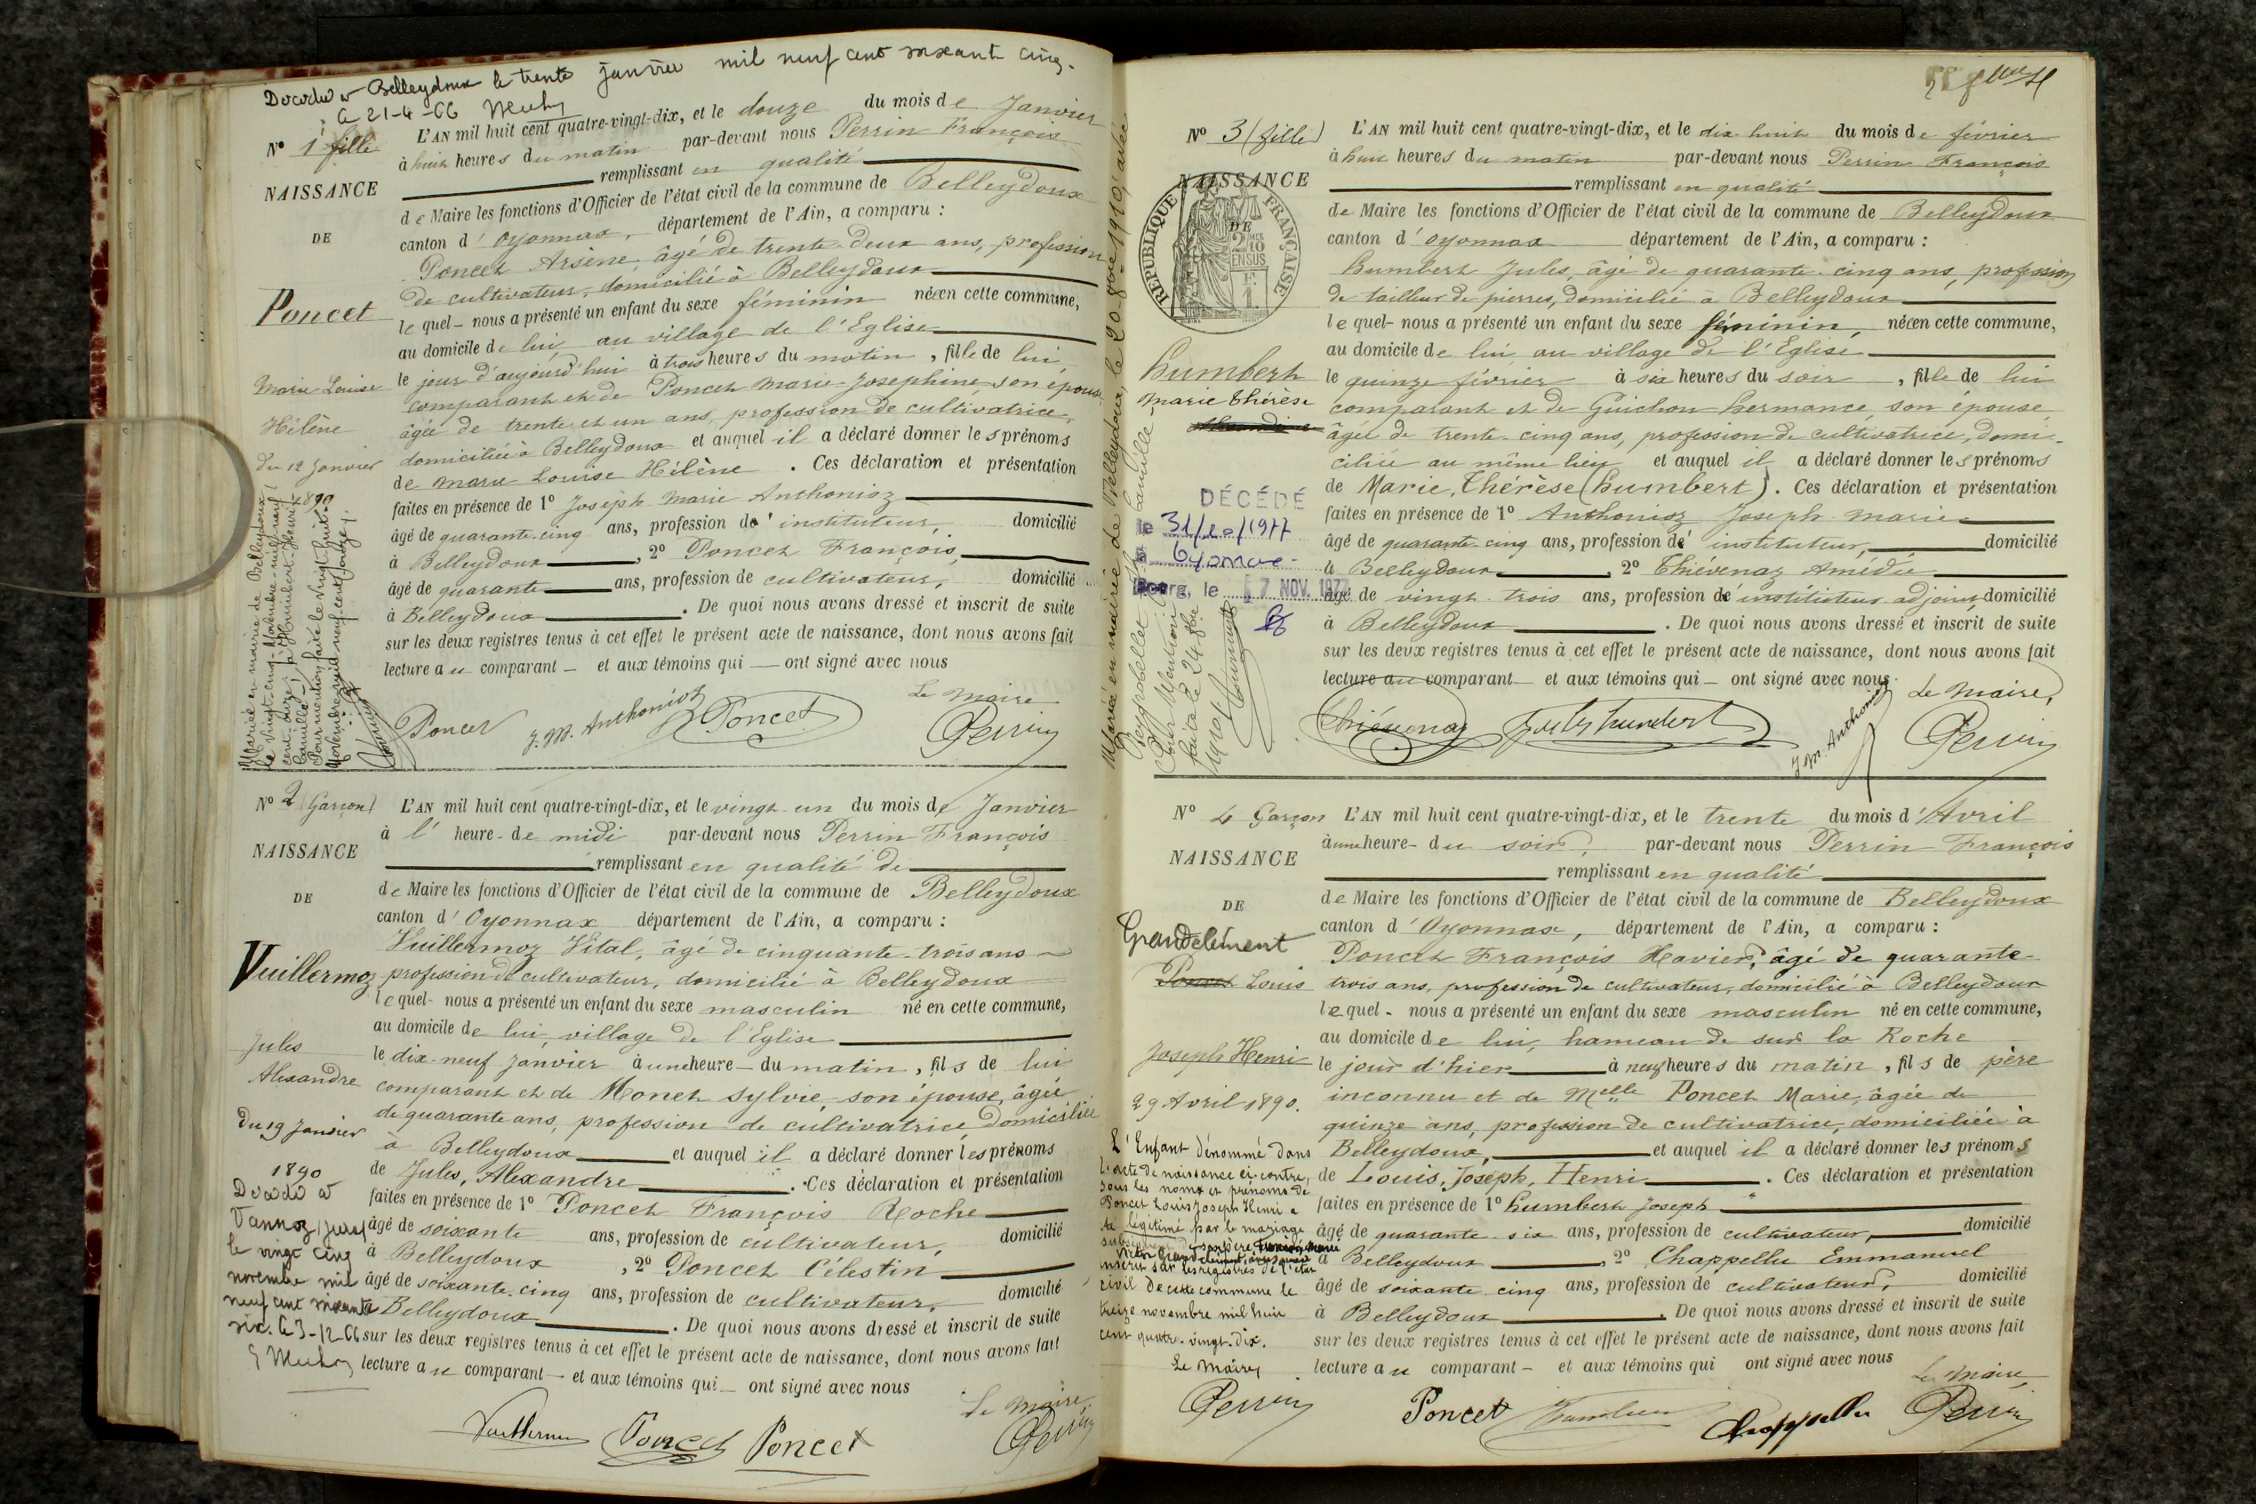 Décédée à Belleydoux le trente janvier mil neuf cent soixante cinq.
le 21-4-66
N° 1 fille
NAISSANCE
DE
Poncet
Marie Louise
Hélène
du 12 Janvier
1890
Mariée en mairie de Belleydoux
le vingt-cinq Novembre mil neuf
cent onze, à Humbert Henri
Camille
Pour mention faite le vingt-huit
Novembre mil neuf cent onze.
L'AN mil huit cent quatre-vingt-dix, et le douze du mois de Janvier
à huit heures du matin par-devant nous Perrin François
remplissant en qualité
de Maire les fonctions d'Officier de l'état civil de la commune de Belleydoux
canton d'Oyonnax, département de l'Ain, a comparu :
Poncet Arsène âgé de trente-deux ans, profession
de cultivateur, domicilié à Belleydoux
lequel nous a présenté un enfant du sexe féminin née en cette commune,
au domicile de lui au village de l'Eglise
le jour d'aujourd'hui à trois heures du matin, fille de lui
comparant et de Poncet Marie-Josephine son épouse
âgée de trente et un ans, profession de cultivatrice,
domiciliée à Belleydoux et auquel il a déclaré donner les prénoms
de Marie Louise Hélène. Ces déclaration et présentation
faites en présence de 1° Joseph Marie Anthonioz
âgé de quarante-cinq ans, profession d'instituteur, domicilié
à Belleydoux, 2° Poncet François,
âgé de quarante ans, profession de cultivateur, domicilié
à Belleydoux. De quoi nous avons dressé et inscrit de suite
sur les deux registres tenus à cet effet le présent acte de naissance, dont nous avons fait
lecture au comparant et aux témoins qui ont signé avec nous
Le Maire
Poncet J. M. Anthonioz Poncet Perrin
N° 2 (Garçon)
NAISSANCE
DE
Vuillermoz
Jules
Alexandre
du 19 Janvier
1890
Décédé à
Vannoz, Jura
le vingt cinq
novembre mil
neuf cent soixante
six. le 3-12-66
L'AN mil huit cent quatre-vingt-dix, et le vingt-un du mois de Janvier
à l'heure de midi par-devant nous Perrin François
remplissant en qualité de
de Maire les fonctions d'Officier de l'état civil de la commune de Belleydoux
canton d'Oyonnax département de l'Ain, a comparu :
Vuillermoz Vital, âgé de cinquante-trois ans
profession de cultivateur, domicilié à Belleydoux
lequel nous a présenté un enfant du sexe masculin né en cette commune,
au domicile de lui, village de l'Eglise
le dix-neuf Janvier à une heure du matin, fils de lui
comparant et de Monet Sylvie, son épouse, âgée
de quarante ans, profession de cultivatrice domiciliée
à Belleydoux et auquel il a déclaré donner les prénoms
de Jules, Alexandre. Ces déclaration et présentation
faites en présence de 1° Poncet François Roche
âgé de soixante ans, profession de cultivateur, domicilié
à Belleydoux, 2° Poncet Célestin
âgé de soixante-cinq ans, profession de cultivateur, domicilié
à Belleydoux. De quoi nous avons dressé et inscrit de suite
sur les deux registres tenus à cet effet le présent acte de naissance, dont nous avons fait
lecture au comparant et aux témoins qui ont signé avec nous
Le Maire
Poncet Poncet Perrin
N° 3 (fille)
NAISSANCE
DE
RÉPUBLIQUE FRANÇAISE
2/10 EN SUS
Humbert
Marie Thérèse
DÉCÉDÉ
le 31/10/1977
à Oyonnax
Bourg, le 7 NOV. 1977
Mariée en mairie de Belleydoux, le 20 8bre 1910, avec
Pour Mention
faite le 24 8bre
1910
L'AN mil huit cent quatre-vingt-dix, et le dix-huit du mois de février
à huit heures du matin par-devant nous Perrin François
remplissant en qualité
de Maire les fonctions d'Officier de l'état civil de la commune de Belleydoux
canton d'Oyonnax département de l'Ain, a comparu :
Humbert Jules, âgé de quarante-cinq ans, profession
de tailleur de pierres, domicilié à Belleydoux
lequel nous a présenté un enfant du sexe féminin, née en cette commune,
au domicile de lui au village de l'Eglise
le quinze février à six heures du soir, fille de lui
comparant et de Guichon Hermance, son épouse,
âgée de trente-cinq ans, profession de cultivatrice, domi-
ciliée au même lieu et auquel il a déclaré donner les prénoms
de Marie, Thérèse (Humbert). Ces déclaration et présentation
faites en présence de 1° Anthonioz Joseph Marie
âgé de quarante-cinq ans, profession d'instituteur, domicilié
à Belleydoux, 2° Thiévenaz Amédée
âgé de vingt-trois ans, profession d'instituteur adjoint domicilié
à Belleydoux. De quoi nous avons dressé et inscrit de suite
sur les deux registres tenus à cet effet le présent acte de naissance, dont nous avons fait
lecture au comparant et aux témoins qui ont signé avec nous.
Le Maire,
Thiévenaz Jules Humbert J. M. Anthonioz Perrin
N° 4 Garçon
NAISSANCE
DE
Grandclément
Poncet Louis
Joseph Henri
29 Avril 1890.
L'Enfant dénommé dans
l'acte de naissance ci-contre,
sous les noms et prénoms de
Poncet Louis Joseph Henri a
été légitimé par le mariage
subséquent de son père
Victor Grandclément avec sa mère
inscrit sur les registres de l'état
civil de cette commune le
treize novembre mil huit
cent quatre-vingt-dix.
Le Maire
Perrin
L'AN mil huit cent quatre-vingt-dix, et le trente du mois d'Avril
à une heure du soir, par-devant nous Perrin François
remplissant en qualité
de Maire les fonctions d'Officier de l'état civil de la commune de Belleydoux
canton d'Oyonnax, département de l'Ain, a comparu :
Poncet François Xavier, âgé de quarante-
trois ans, profession de cultivateur, domicilié à Belleydoux
lequel nous a présenté un enfant du sexe masculin né en cette commune,
au domicile de lui, hameau de sur la Roche
le jour d'hier à neuf heures du matin, fils de père
inconnu et de Melle Poncet Marie, âgée de
quinze ans, profession de cultivatrice, domiciliée à
Belleydoux, et auquel il a déclaré donner les prénoms
de Louis, Joseph, Henri. Ces déclaration et présentation
faites en présence de 1° Humbert Joseph
âgé de quarante-six ans, profession de cultivateur, domicilié
à Belleydoux, 2° Chappellu Emmanuel
âgé de soixante-cinq ans, profession de cultivateur, domicilié
à Belleydoux. De quoi nous avons dressé et inscrit de suite
sur les deux registres tenus à cet effet le présent acte de naissance, dont nous avons fait
lecture au comparant et aux témoins qui ont signé avec nous
Le Maire,
Poncet Chappellu Perrin